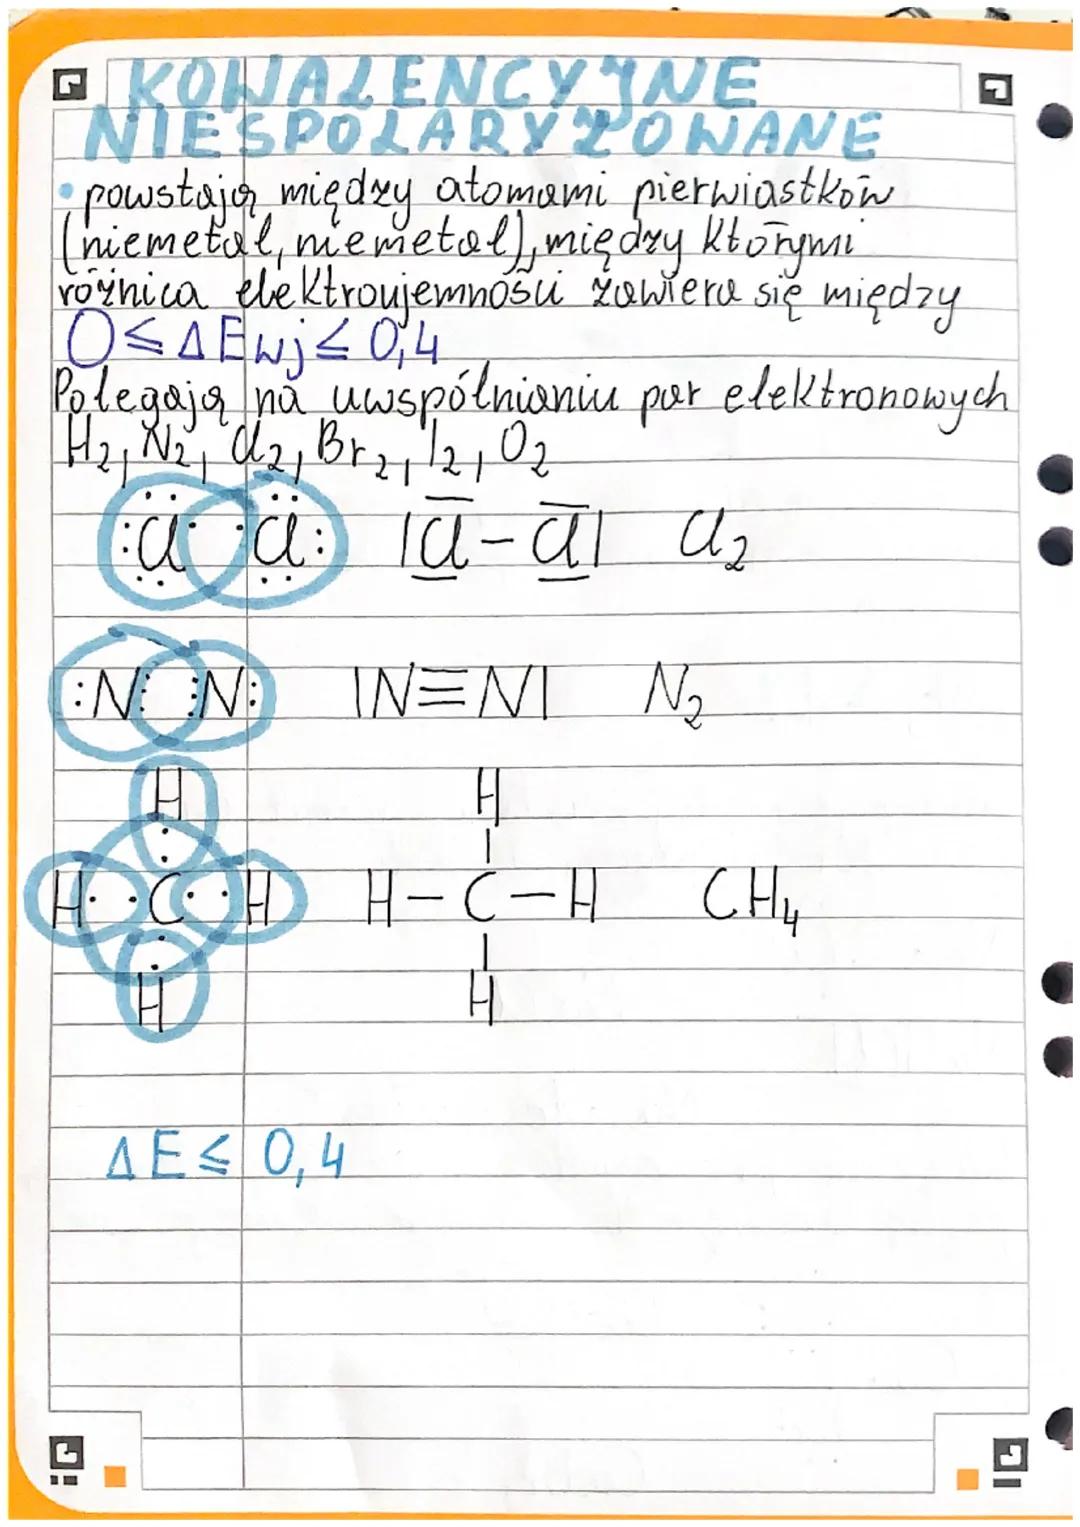 KOWALENCYJNE
NIESPOLARYZOWANE
• powstają między atomami pierwiastków
(niemetal, niemetal), między którymi
różnica elektroujemności zawiera się między
0 ≤ ΔEwj ≤ 0,4
Polegają na uwspólnianiu par elektronowych
H₂, N₂, Cl₂, Br₂, I₂, O₂
:Cl· ·Cl: |Cl-Cl| Cl₂
:N⋮ ⋮N: |N≡N| N₂
H H
H··C··H H-C-H CH₄
H H
ΔE ≤ 0,4